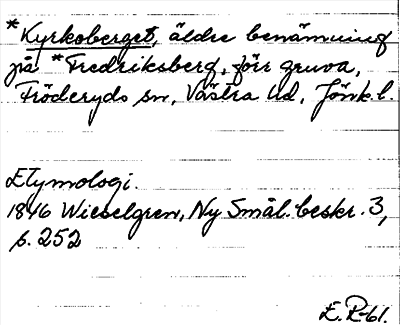 *Kyrkoberget, äldre benämning
på *Fredriksberg, förr gruva,
Fröderyds sn, Västra hd, Jönk.l.
Etymologi.
1846 Wieselgren, Ny Smål. beskr. 3,
s. 252
E. R-61.